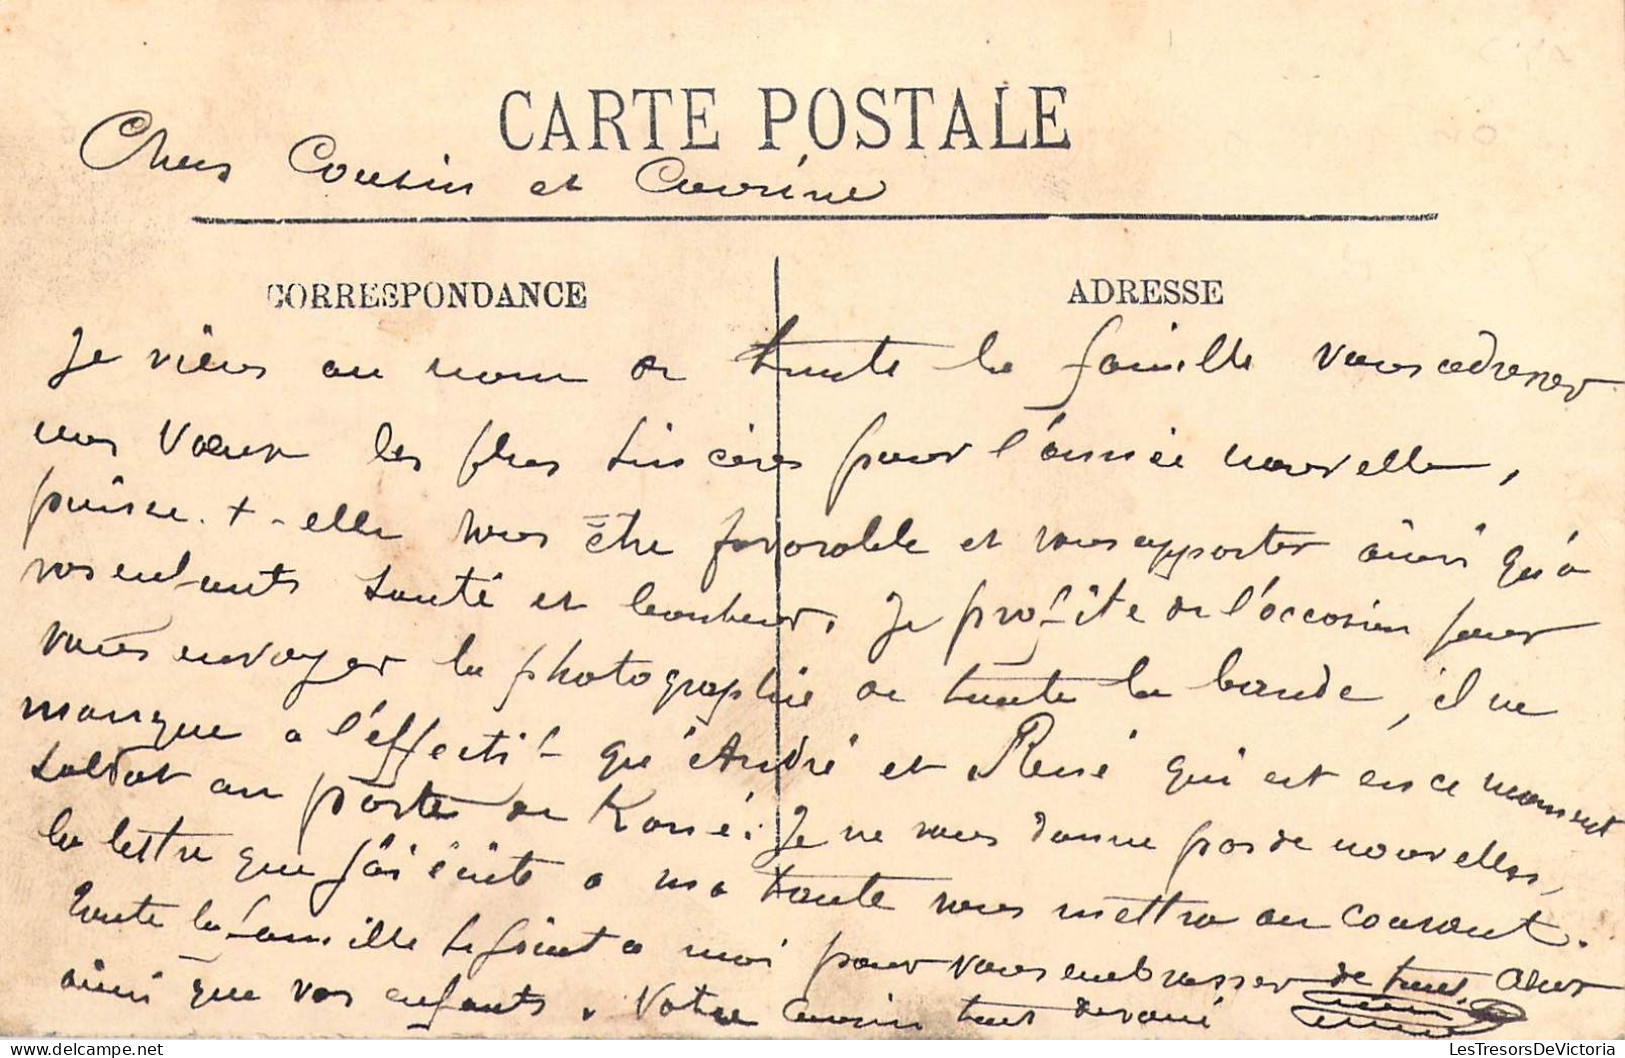 CARTE POSTALE
Chers Cousin et Cousine
CORRESPONDANCE
ADRESSE
Je viens au nom de toute la famille vous adresser
nos vœux les plus sincères pour l'année nouvelle,
puisse-t-elle vous être favorable et vous apporter ainsi qu'à
vos enfants santé et bonheur. Je profite de l'occasion pour
vous envoyer la photographie de toute la bande, il ne
manque à l'effectif qu'André et René qui est en ce moment
soldat au poste de Koné. Je ne vous donne pas de nouvelles,
la lettre que j'ai écrite à ma tante vous mettra au courant.
Toute la famille se joint à moi pour vous embrasser de tout cœur
ainsi que vos enfants. Votre cousin tout dévoué
LesTresorsDeVictoria